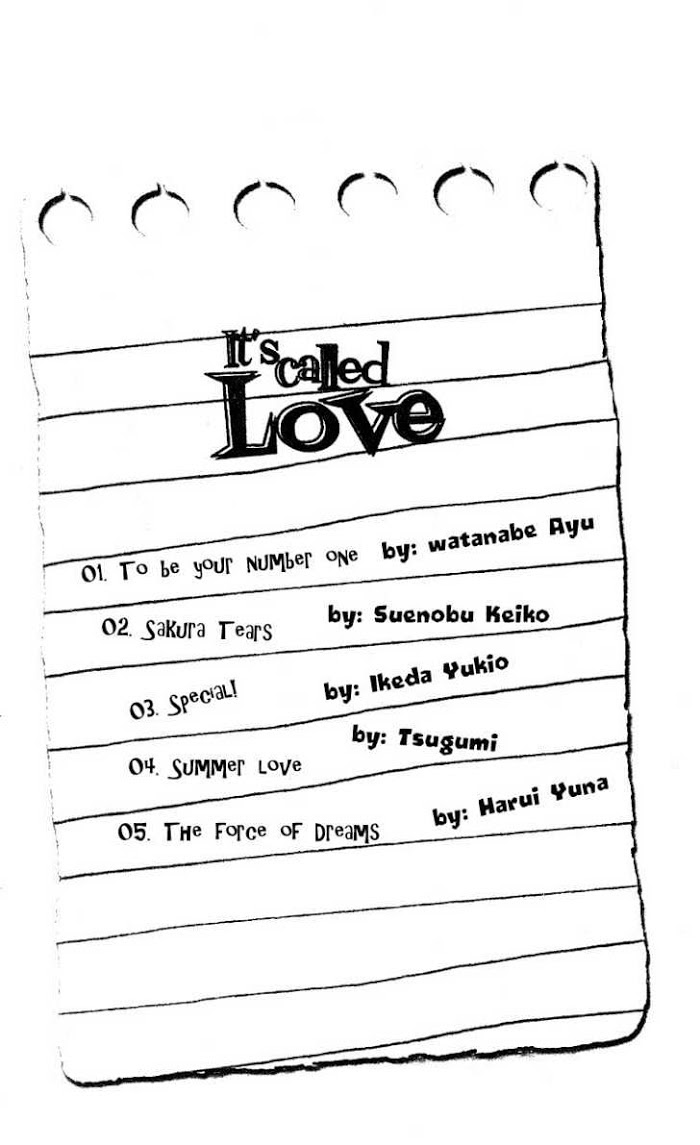 It's called
Love
01. To be your Number one by: watanabe Ayu
02. Sakura Tears by: Suenobu Keiko
03. Special! by: Ikeda Yukio
04. Summer Love by: Tsugumi
05. The Force of Dreams by: Harui Yuna